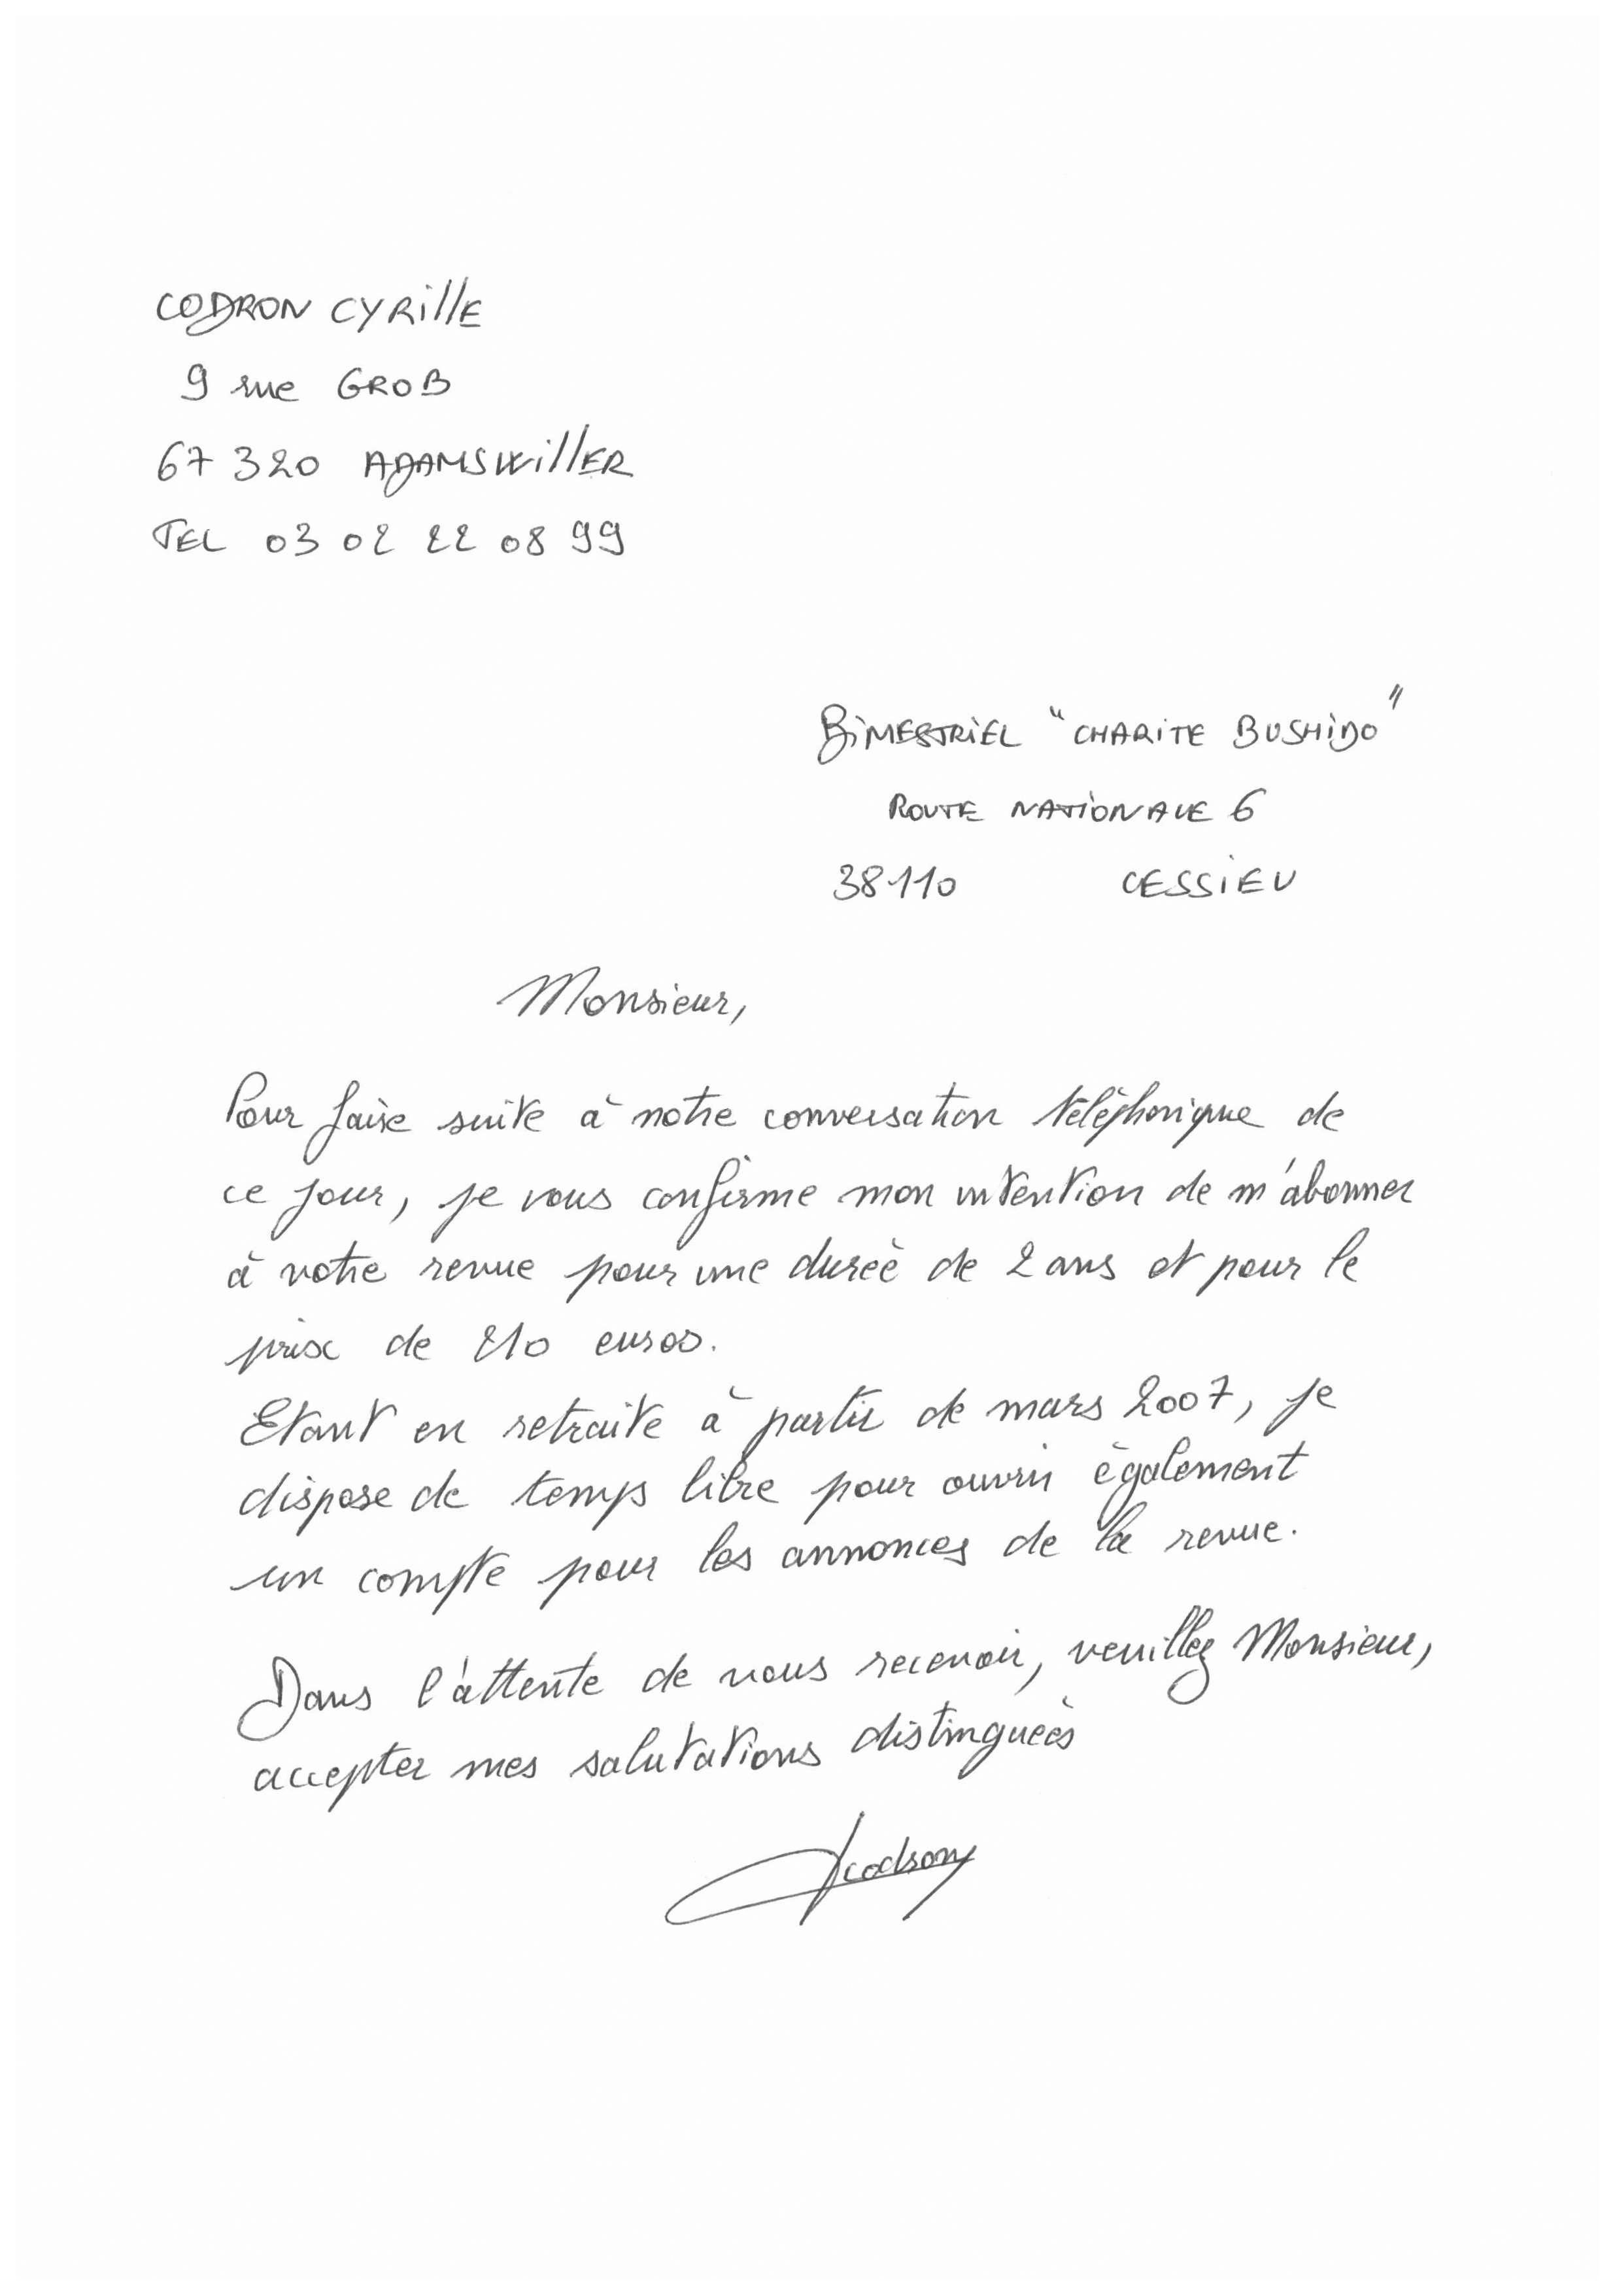 CODRON CYRILLE
9 rue GROB
67 320 ADAMSWILLER
TEL 03 02 22 08 99
BIMESTRIEL "CHARITE BUSHIDO"
ROUTE NATIONALE 6
38110 CESSIEU
Monsieur,
Pour faire suite à notre conversation téléphonique de
ce jour, je vous confirme mon intention de m'abonner
à votre revue pour une durée de 2 ans et pour le
prix de 210 euros.
Etant en retraite à partir de mars 2007, je
dispose de temps libre pour ouvrir également
un compte pour les annonces de la revue.
Dans l'attente de vous recevoir, veuillez Monsieur,
accepter mes salutations distinguées
codron